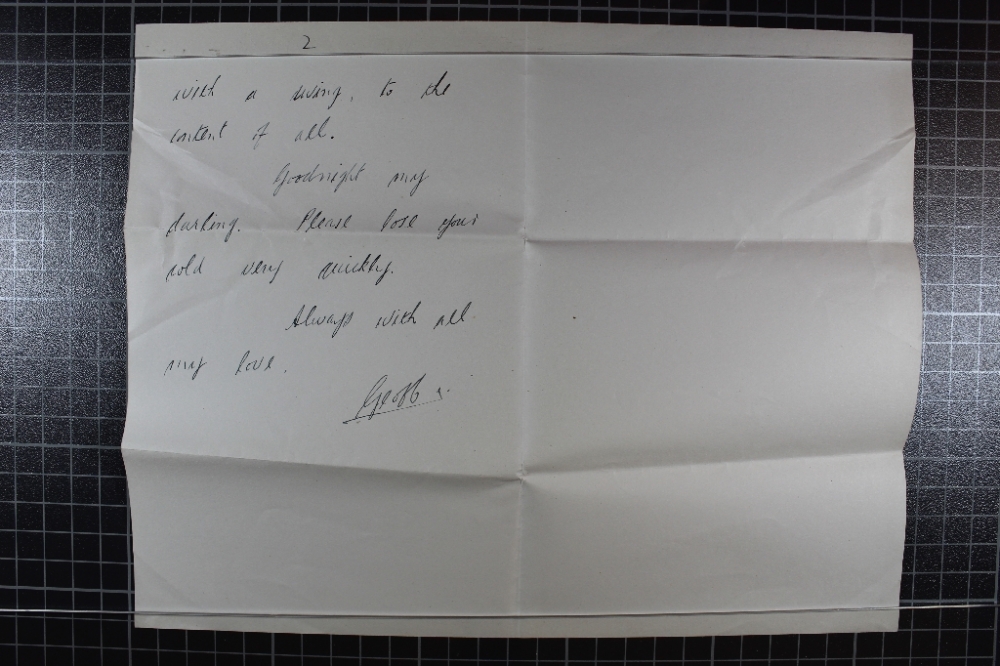 2
with a swing, to the
content of all.
Goodnight my
darling. Please lose your
cold very quickly.
Always with all
my love.
Geoff x.